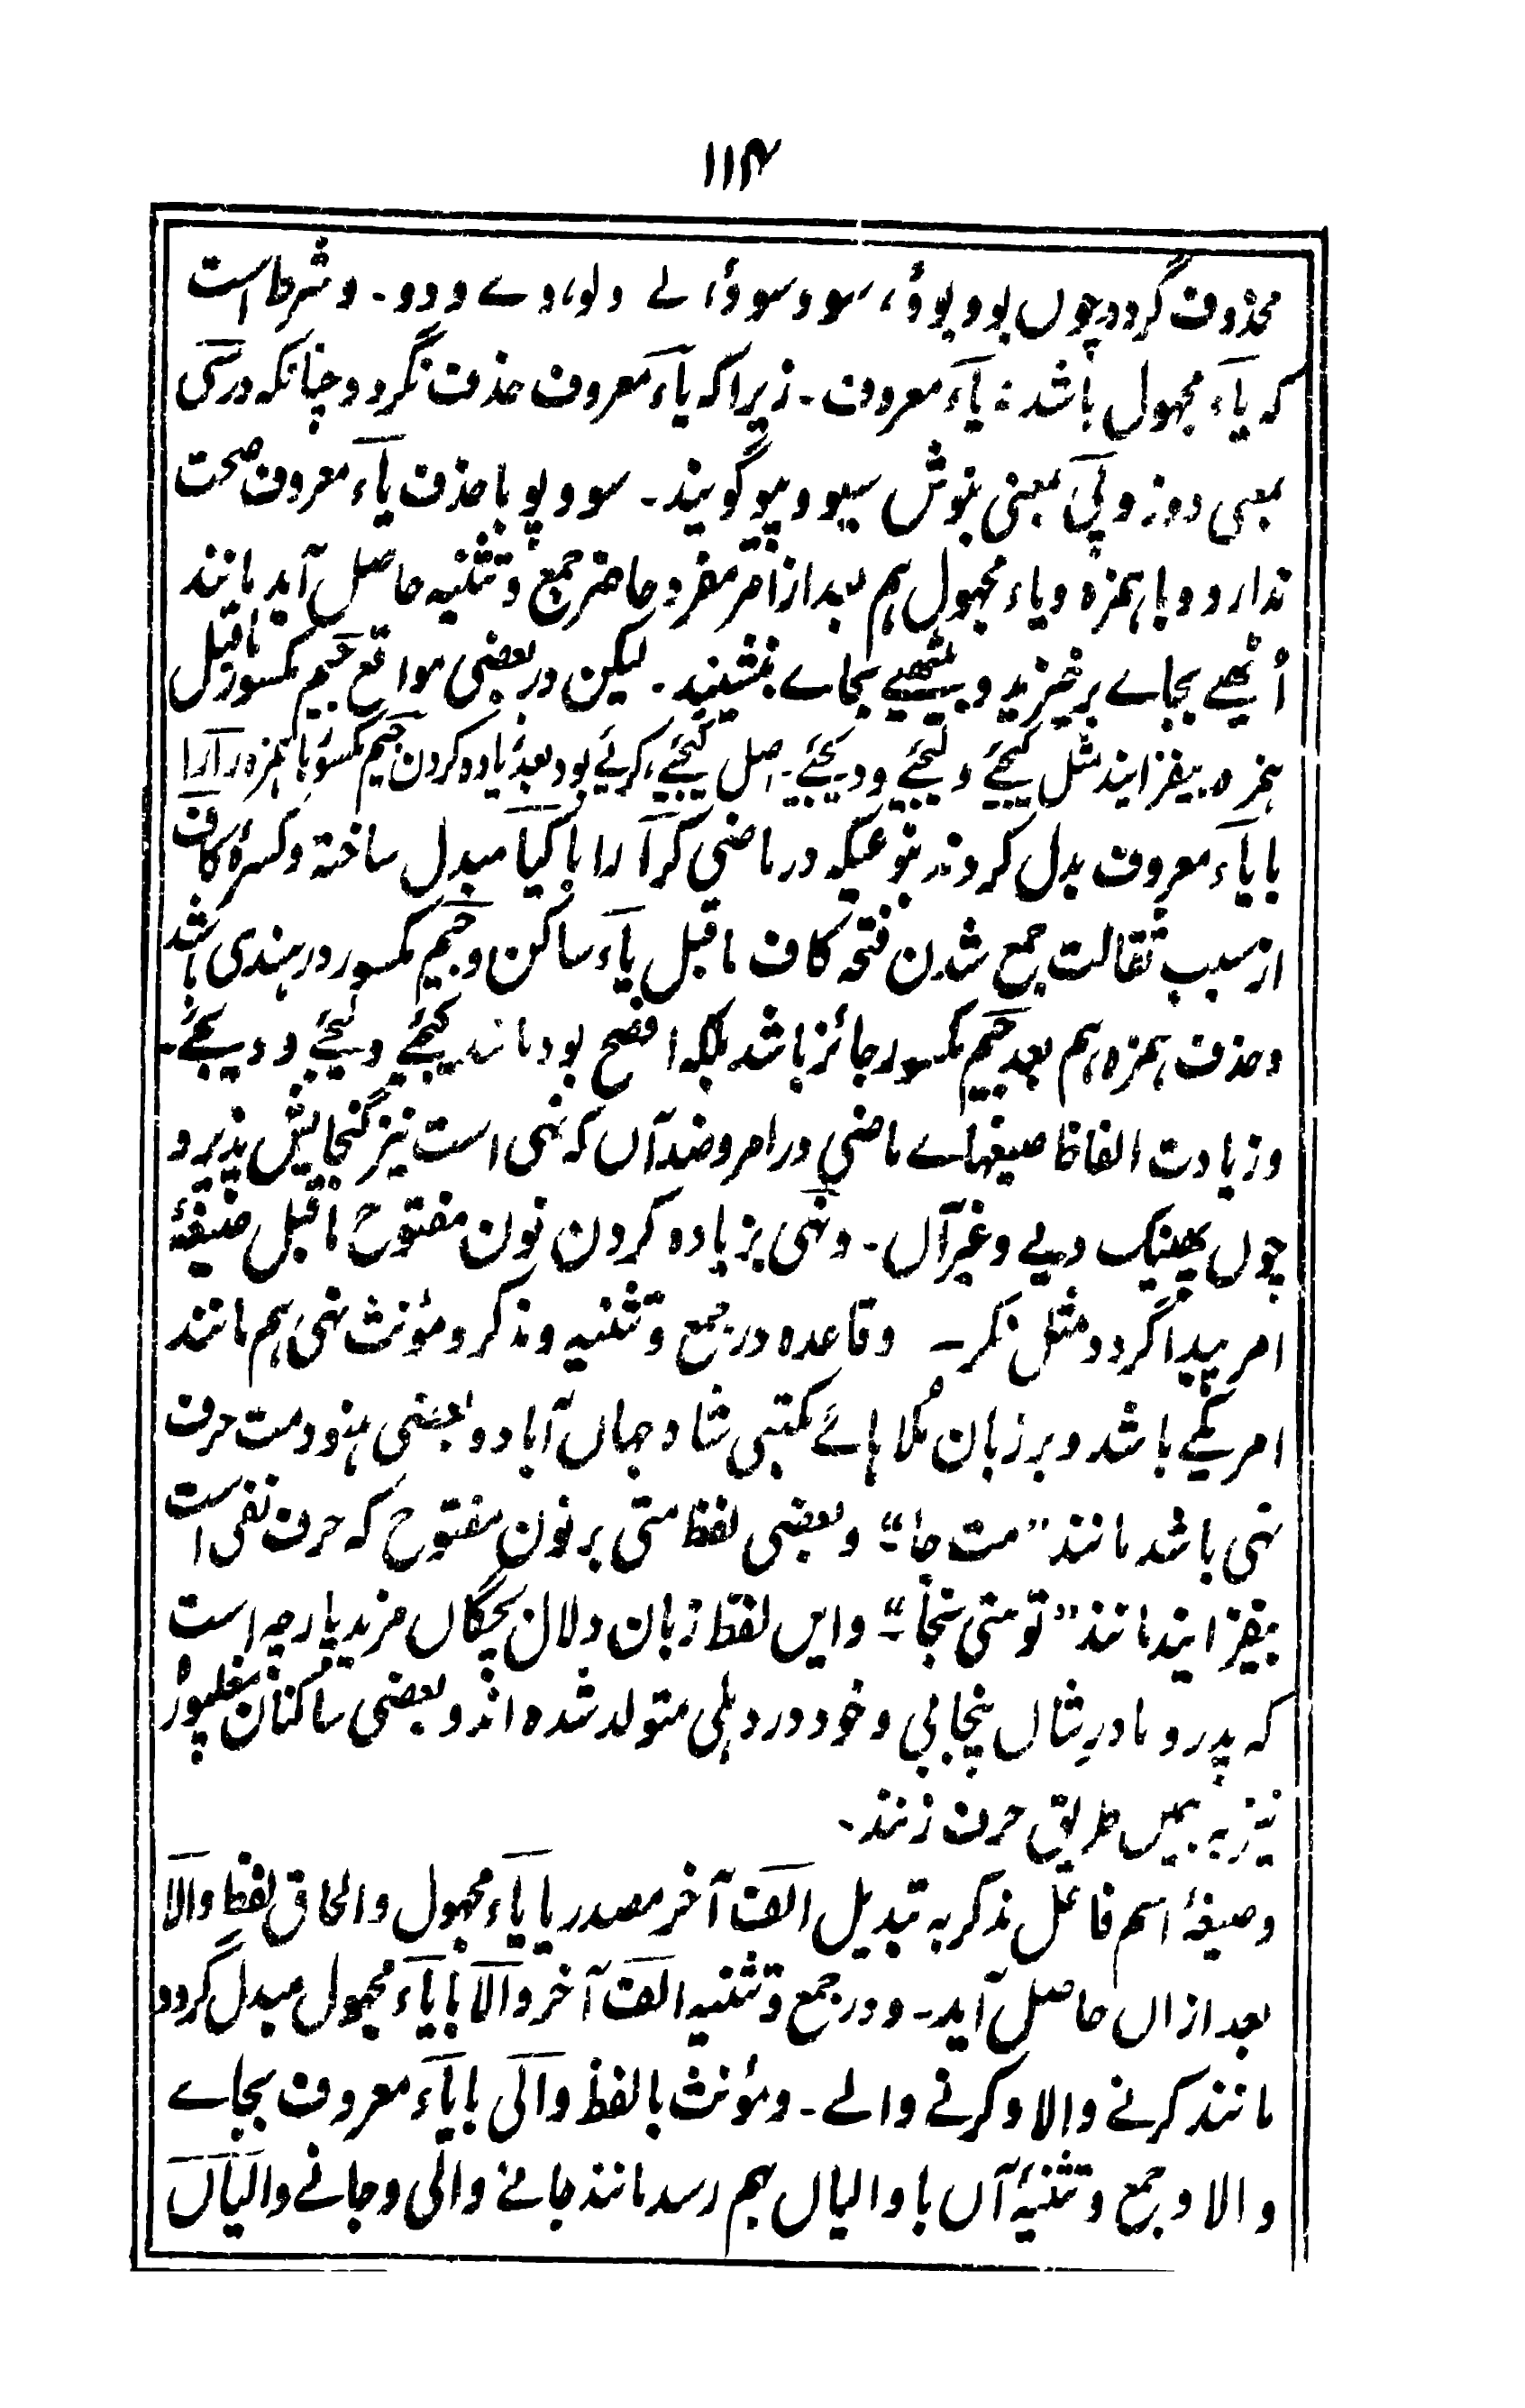 ۱۱۴
محذوف گردد چوں بو و بوؤ، سو و سوؤ، لے و لو، دے و دو۔ و شرط است
کہ یاَء مجہول باشد نہ یاَء معروف۔ زیرا کہ یاَء معروف حذف نگردد چنانکہ در سی
بمعنی دوز و پی بمعنی بنوش سیو و پیو گویند۔ سو و پو با حذف یاَء معروف صحت
ندارد و با ہمزہ و یاء مجہول ہم بعد از امر مفرد حاضر جمع و تثنیہ حاصل آید مانند
اُٹھیے بجاے برخیزید و بیٹھیے بجاے بنشینید۔ لیکن در بعضی مواقع جیم مکسور ماقبل
ہمزہ بیفزایند مثل کیجئے و لیجئے و دیجئے۔ اصل کیجئے، کریئے بود بعد زیادہ کردن جیم مکسور با ہمزہ را را
با یاَء معروف بدل کردند بنوعیکہ در ماضی کرا را با کیا مبدل ساختہ و کسرۂ کاف
از سبب ثقالت جمع شدن فتحہ کاف ماقبل یاَء ساکن و جیم مکسور در ہندی باشد
و حذف ہمزہ ہم بعد جیم مکسور جائز باشد بلکہ افصح بود مانند کیجیے و لیجیے و دیجیے۔
و زیادت الفاظ صیغہاے ماضی در امر و ضد آں کہ نہی است نیز گنجایش پذیرد
چوں پھینک دیے و غیر آں۔ و نہی بزیادہ کردن نون مفتوح ماقبل صیغۂ
امر پیدا گردد مثل نکر۔ و قاعدہ در جمع و تثنیہ و مذکر و مؤنث نہی ہم مانند
امر یکے باشد و بر زبان مُلا ہائے مکتبی شاہ جہاں آباد و بعضی ہنود مت حرف
نہی باشد مانند ”مت جا“۔ و بعضی لفظ متی بر نون مفتوح کہ حرف نفی است
بیفزایند مانند ”تو متی نجا“۔ و ایں لفظ زبان دلال بچگاں مزید پارچہ است
کہ پدر و مادرِ شاں پنجابی و خود در دہلی متولد شدہ اند و بعضی ساکنان مغلپورہ
نیز بہ ہمیں طریق حرف زنند۔
و صیغۂ اسم فاعل مذکر بہ تبدیل الف آخر مصدر با یاَء مجہول و الحاق لفظِ والا
بعد ازاں حاصل آید۔ و در جمع و تثنیہ الف آخر والا با یاَء مجہول مبدل گردد
مانند کرنے والا و کرنے والے۔ و مؤنث با لفظ والی با یاَء معروف بجاے
والا و جمع و تثنیۂ آں با والیاں بہم رسد مانند جانے والی و جانے والیاں